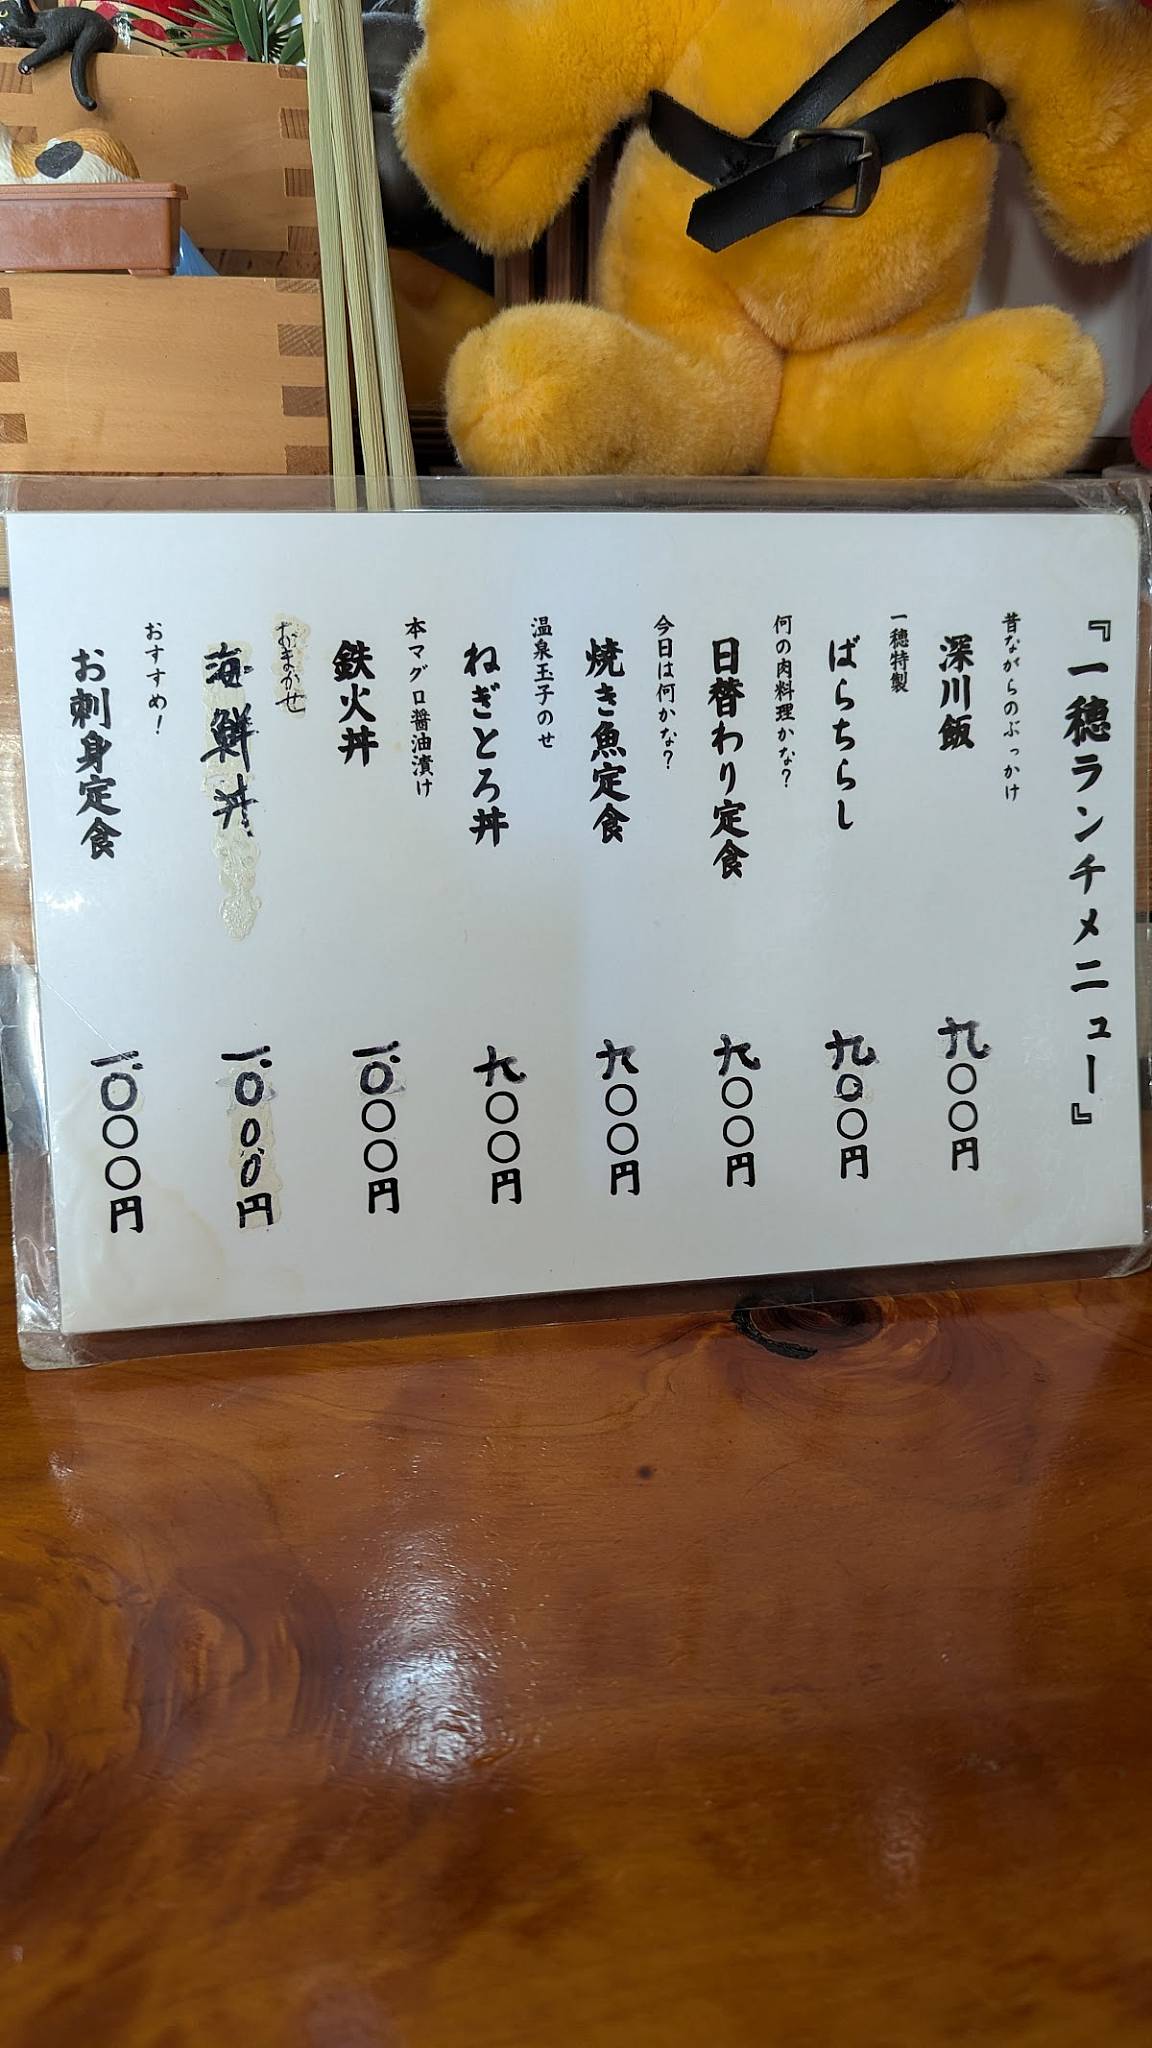 『一穂ランチメニュー』
昔ながらのぶっかけ
深川飯 九〇〇円
一穂特製
ばらちらし 九〇〇円
何の肉料理かな？
日替わり定食 九〇〇円
今日は何かな？
焼き魚定食 九〇〇円
温泉玉子のせ
ねぎとろ丼 九〇〇円
本マグロ醤油漬け
鉄火丼 一、〇〇〇円
おまかせ
海鮮丼 一、〇〇〇円
おすすめ！
お刺身定食 一、〇〇〇円